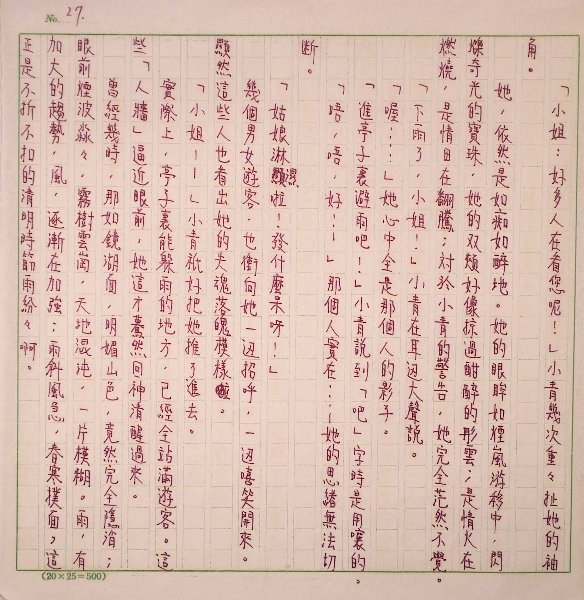 No. 27.
角。
「小姐:好多人在看您呢!」小青幾次重々扯她的袖
她,依然是如痴如醉地。她的眼眸如煙嵐游移中,閃
爍奇光的寶珠,她的双頰好像掠過酣醉的彤雲;是情火在
燃燒,是情由在翻騰;対於小青的警告,她完全茫然不覺。
「下雨了,小姐!」小青在耳边大聲說。
「喔⋯⋯」她心中全是那個人的影子。
「進亭子裏避雨吧!」小青說到「吧」字時是用嚷的。
「唔,唔,好!—」那個人實在⋯⋯—她的思緒無法切
断。
「姑娘淋濕啦!發什麼呆呀!」
幾個男女遊客,也衝向她一边招呼,一边嘻笑開來。
顯然這些人也看出她的失魂落魄模樣啦。
「小姐——」小青衹好把她推了進去。
實際上,亭子裏能躲雨的地方,已經全站滿遊客。這
些「人牆」逼近眼前,她這才驀然回神清醒過來。
曾經幾時,那如鏡湖面,明媚山色,竟然完全隱消;
眼前煙波淼々,霧樹雲崗,天地混沌,一片模糊。雨,有
加大的趨勢,風,逐漸在加強;雨斜風急,春寒撲面,這
正是不折不扣的清明時節雨紛々啊。
(20×25=500)